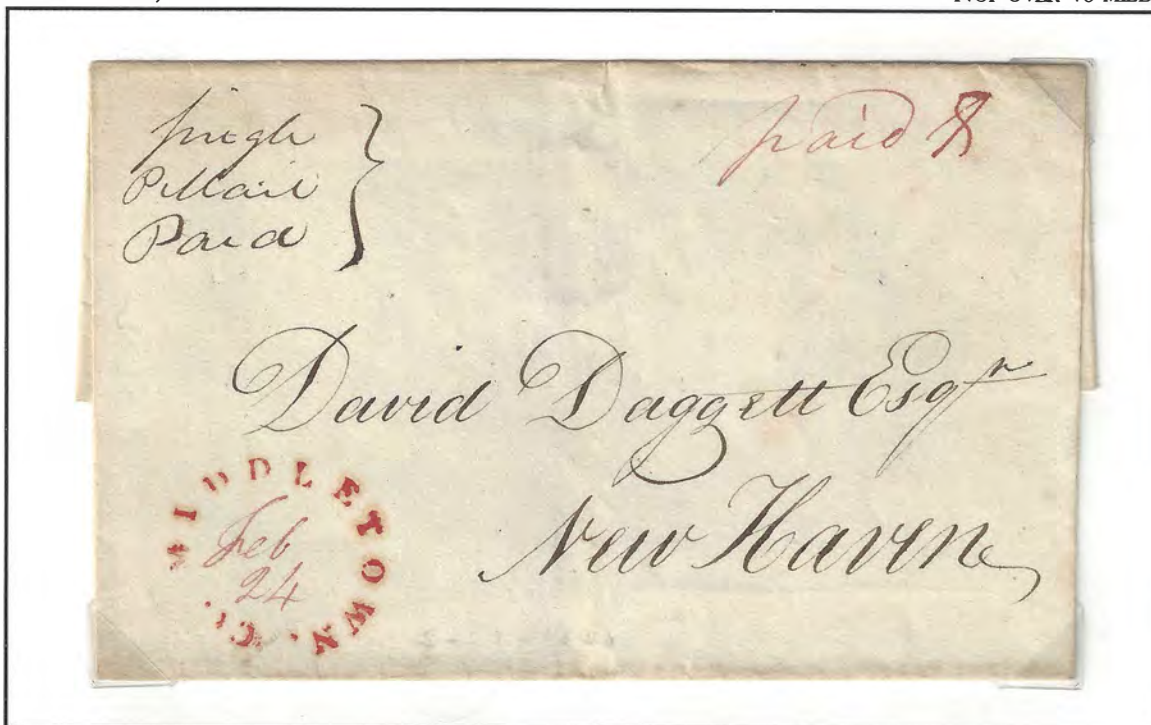 Single
P Mail
Paid
paid 8
David Daggett Esqr
New Haven
MIDDLETOWN. Ct.
Feb
24